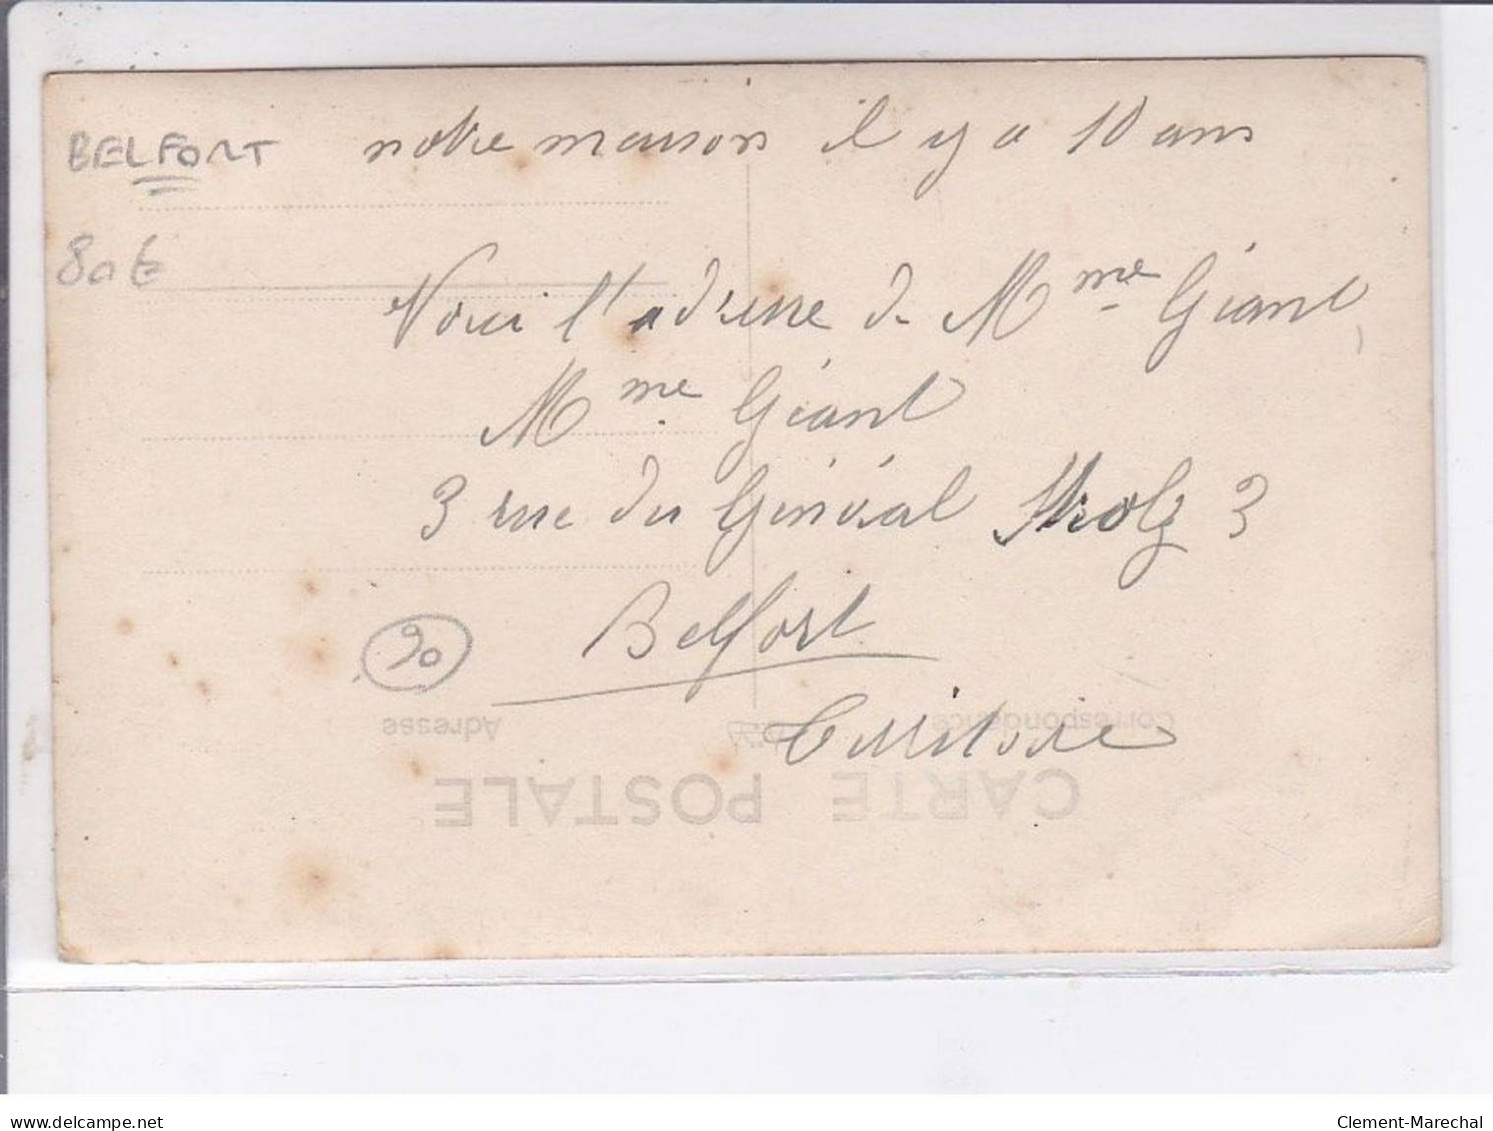 BELFORT notre maison il y a 10 ans
80 €
Voici l'adresse de Mme Géant
Mme Géant
3 rue du Général Strolz 3
Belfort
90
Territoire
Correspondance
Adresse
CARTE POSTALE
www.delcampe.net
Clement-Marechal